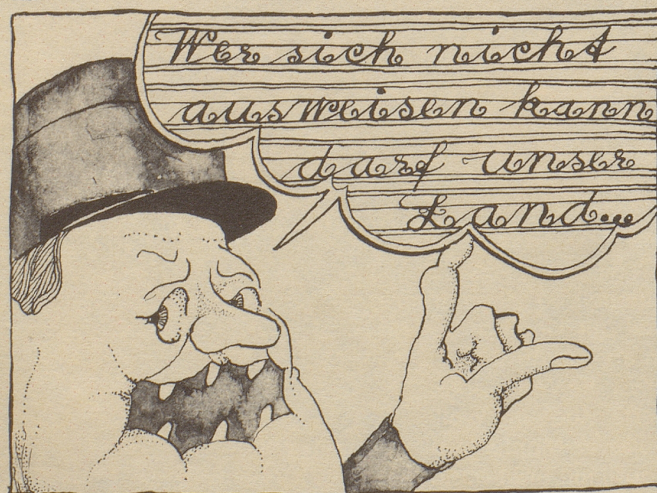 Wer sich nicht
ausweisen kann
darf unser
Land...